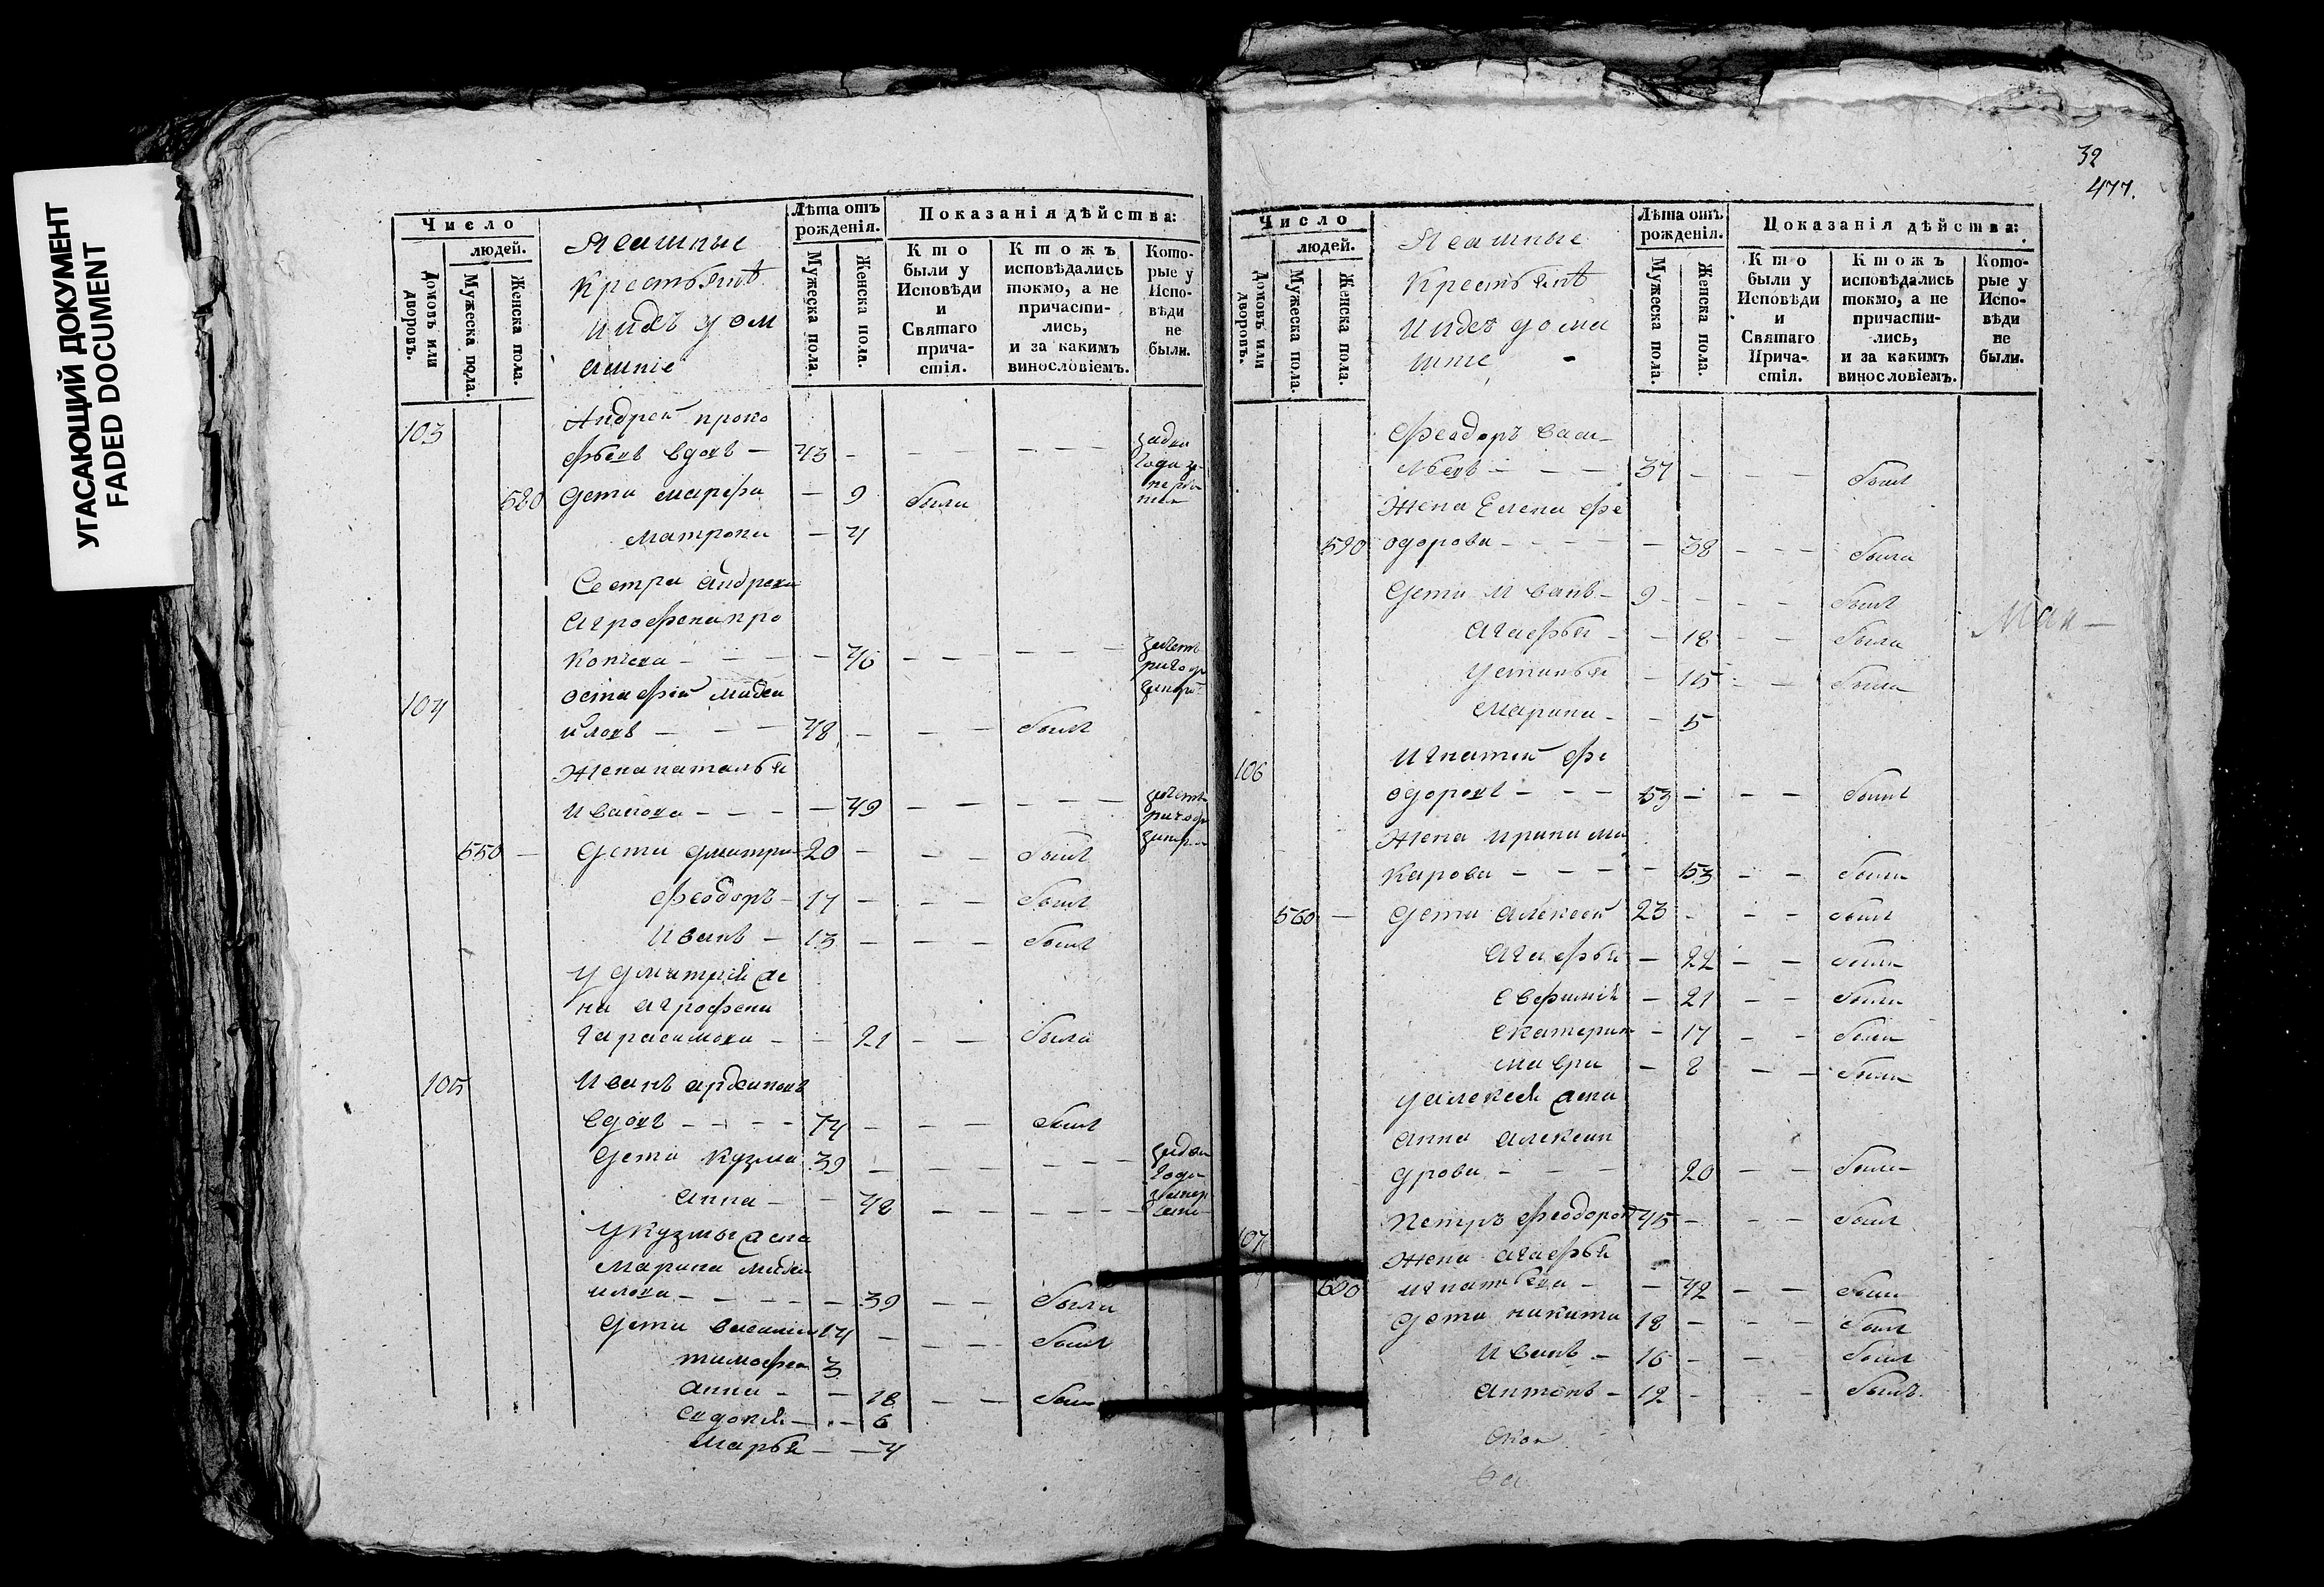 УГАСАЮЩИЙ ДОКУМЕНТ
FADED DOCUMENT
Число
людей.
Домовъ или дворовъ.
Мужеска пола.
Женска пола.
Крестьянѣ
Лѣта отъ рожденія.
Мужеска пола.
Женска пола.
Показанія дѣйства:
Кто были у Исповѣди и Святаго причастія.
Ктожъ исповѣдались токмо, а не причастились, и за какимъ винословіемъ.
Которые у Исповѣди не были.
103 Андрей проко
фьевъ вдовъ — 43 - - - - - -
580 Дети марфа — 9 были
матрона — 4
Сестра андрея
агрофена про
копьева - - - 46 - - - - - -
104 остафей михаи
иловъ - - - 48 - - - былъ
Жена наталья
иванова - - - 49 - - - - -
550 - Дети дмитри 20 - - - былъ
феодоръ - 17 - - - былъ
иванъ - 13 - - - былъ
у дмитрия же
на агрофена
гарасимова - - 21 - - была
105 Иванъ
вдовъ - - - - 74 - - - былъ
Дети кузма 39 - - - - -
анна - - 48 - - - - -
у кузмы жена
марина михаи
илова - - - - - 39 - - была
Дети василий 14 - - - былъ
тимофеи 3
анна - - 18 - -
евдокия - - 6
марья - - 4
32
477.
Число
людей.
Домовъ или дворовъ.
Мужеска пола.
Женска пола.
Крестьянѣ
Лѣта отъ рожденія.
Мужеска пола.
Женска пола.
Показанія дѣйства:
Кто были у Исповѣди и Святаго Причастія.
Ктожъ исповѣдались токмо, а не причастились, и за какимъ винословіемъ.
Которые у Исповѣди не были.
Феодоръ васи-
льевъ - - - 37 - - - былъ
Жена Елена фе
590 одорова - - - - - 38 - - - была
Дети иванъ - 9 - - - былъ
агафья - - 18 - - была
устинья - 15 - - была
марина - - 5
106 игнатей фе
одоровъ - - - 53 - - - былъ
Жена ирина ма
карова - - - - 53 - - была
560 - Дети алексей 23 - - - былъ
агафья - 22 - - была
евфимия - 21 - - была
екатерина - 17 - - была
мавра - 8 - - была
у алексея жена
анна алексан
дрова - - - 20 - - была
107 Петръ феодоровъ 45 - - - былъ
Жена агафья
600 игнатьева - - 42 - - была
Дети никита 18 - - - былъ
иванъ - 16 - - - былъ
антонъ - 12 - - - былъ.